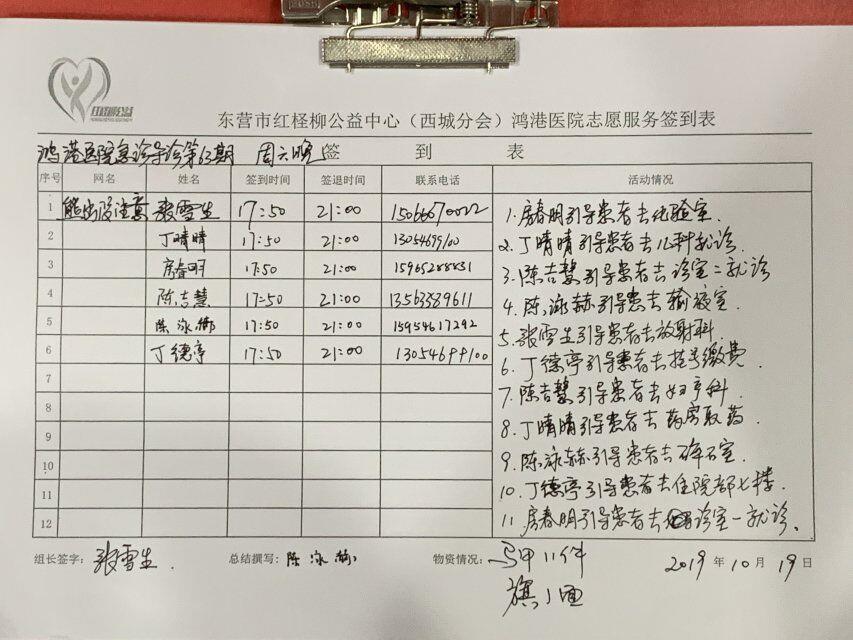 红柽柳公益
东营市红柽柳公益中心（西城分会）鸿港医院志愿服务签到表
鸿港医院急诊导诊第63期 周六晚 签 到 表
序号 网名 姓名 签到时间 签退时间 联系电话 活动情况
1 熊出没注意 张雪生 17:50 21:00 15066070022
2 丁晴晴 17:50 21:00
3 房春明 17:50 21:00 15965288831
4 陈吉慧 17:50 21:00 13563589611
5 陈泳赫 17:50 21:00 15954617292
6 丁德亭 17:50 21:00 13054699100
7
8
9
10
11
12
1.房春明引导患者去化验室.
2.丁晴晴引导患者去儿科就诊.
3.陈吉慧引导患者去诊室二就诊
4.陈泳赫引导患者去输液室.
5.张雪生引导患者去放射科.
6.丁德亭引导患者去挂号缴费.
7.陈吉慧引导患者去妇产科.
8.丁晴晴引导患者去药房取药.
9.陈泳赫引导患者去碎石室.
10.丁德亭引导患者去住院部七楼.
11.房春明引导患者去诊室一就诊.
组长签字： 张雪生. 总结撰写： 陈泳赫 物资情况： 马甲11件
旗1面
2019 年 10 月 19 日